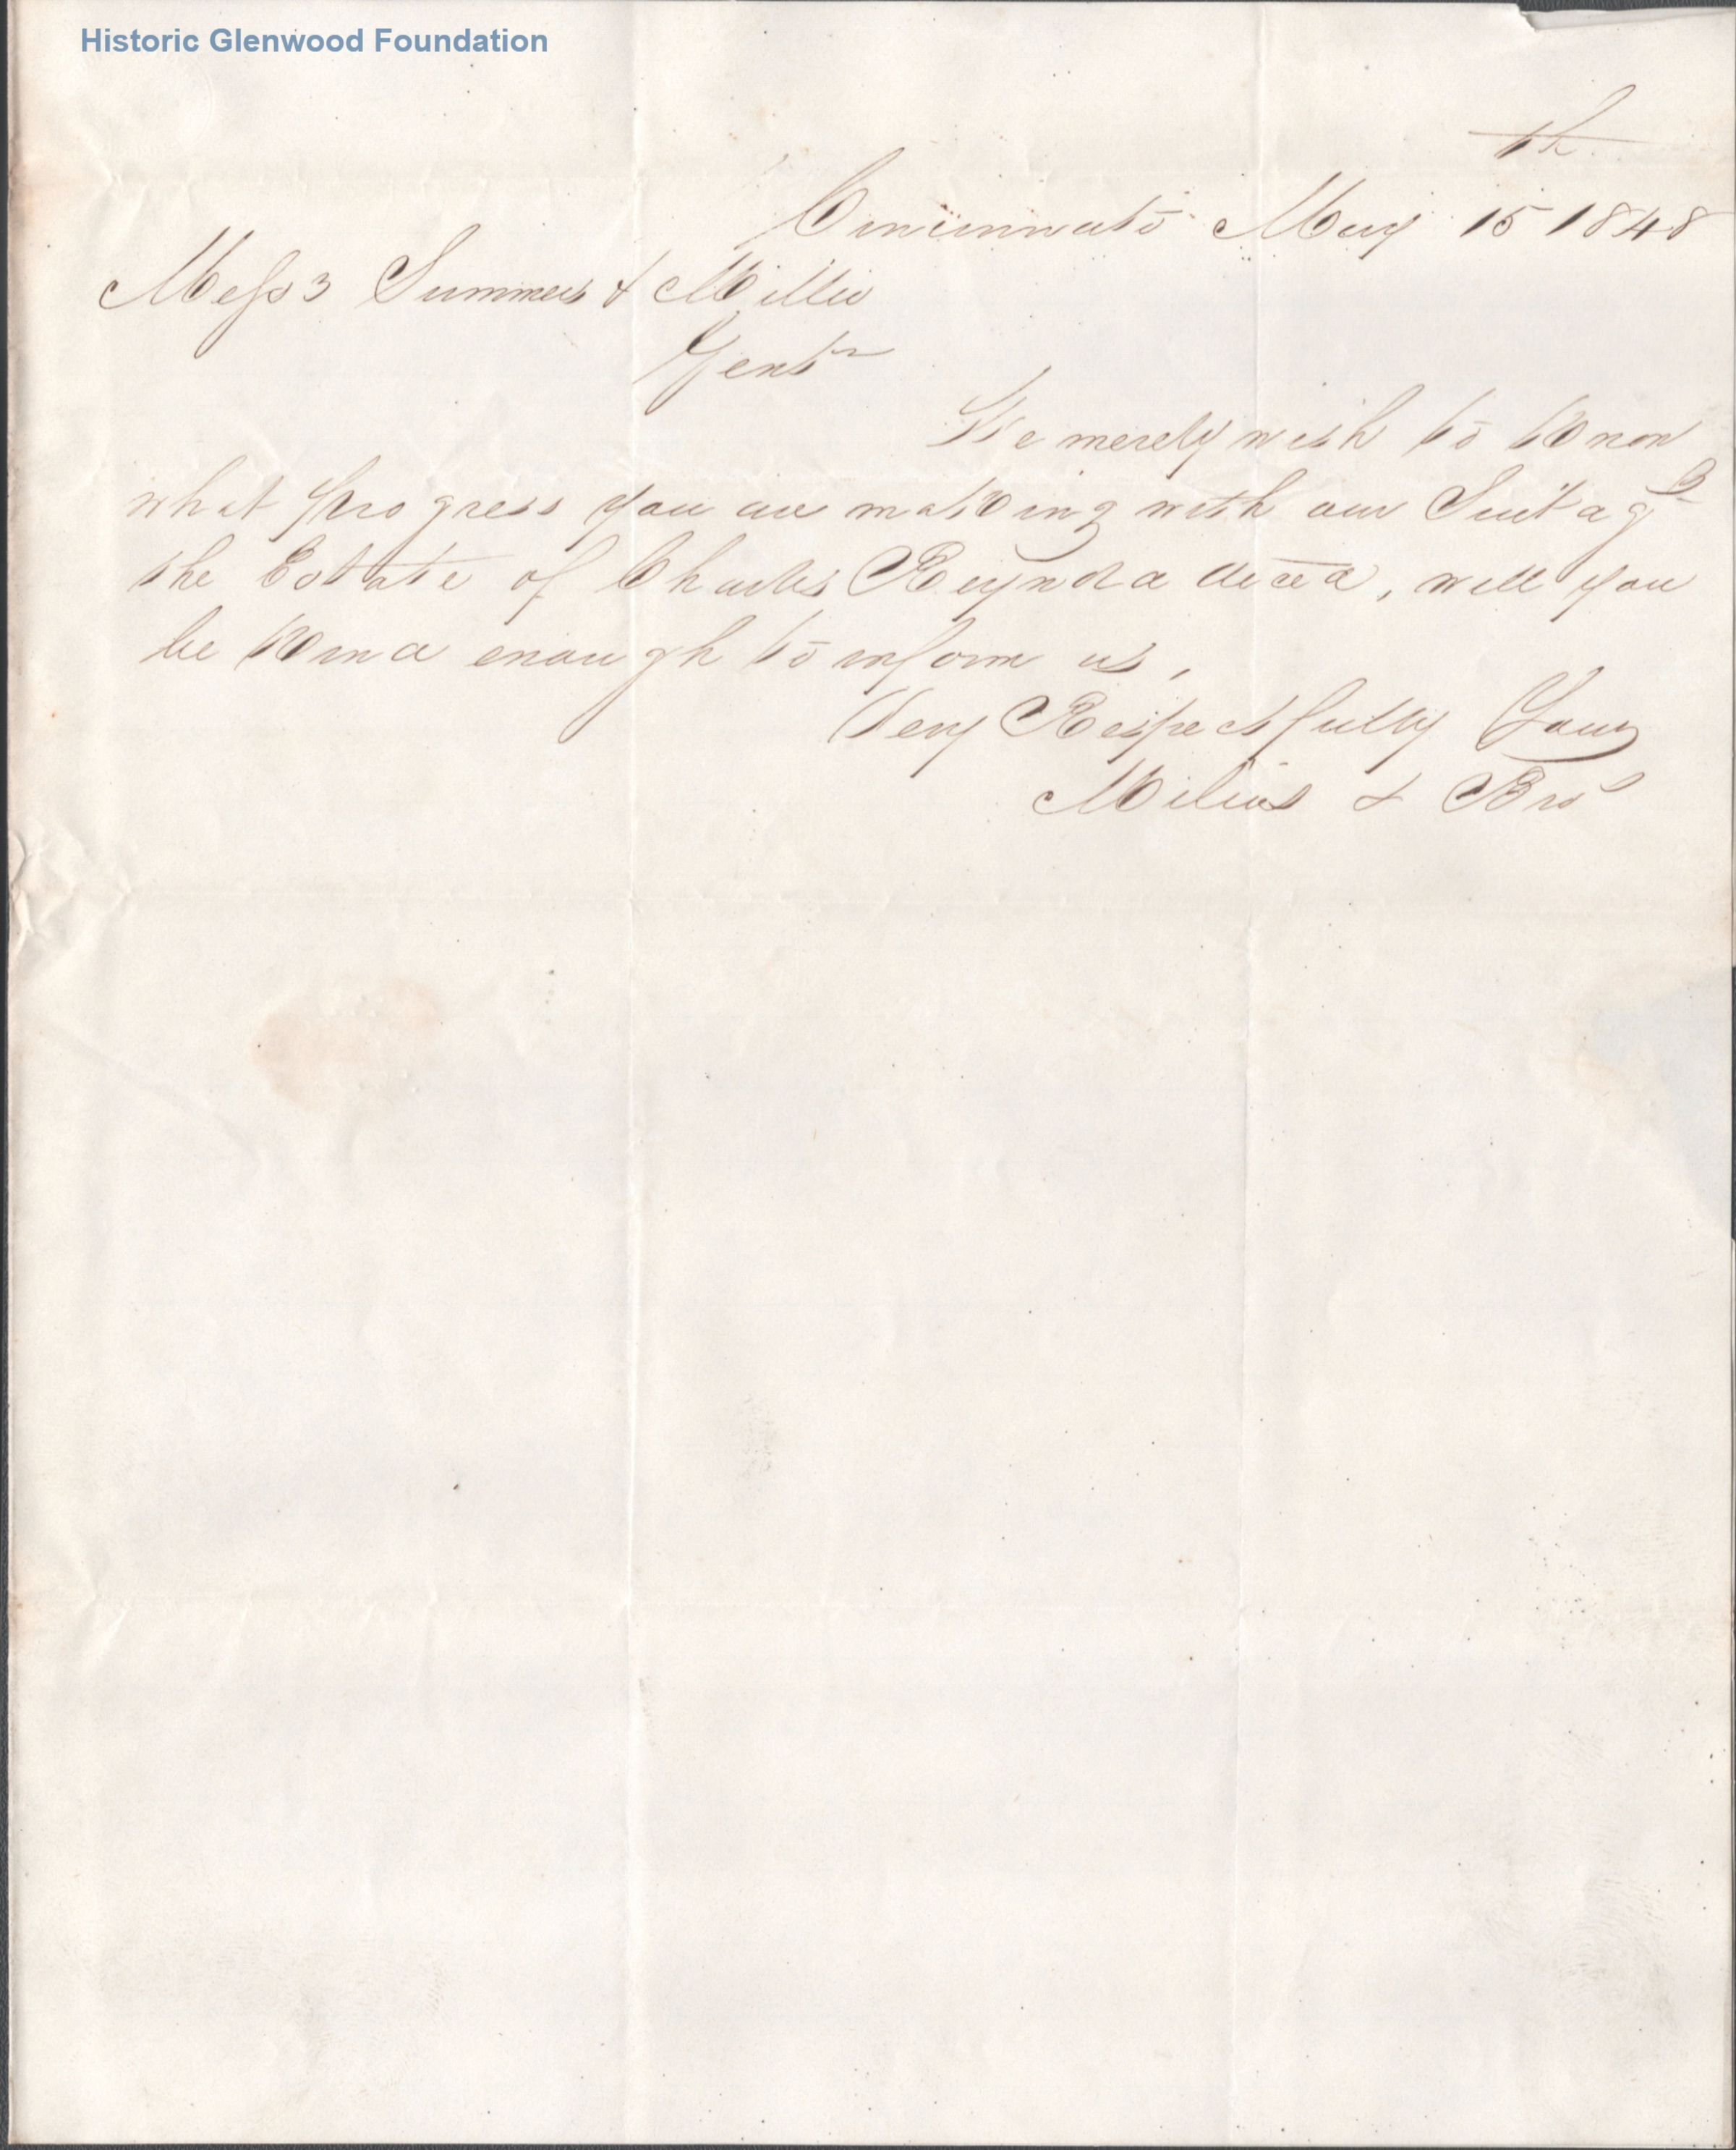 Historic Glenwood Foundation
th
Cincinnati May 15 1848
Messrs Summers & Miller
Gents
We merely wish to know
what progress you are making with our Suit ag
the Estate of Charles Reynolds deced, will you
be kind enough to inform us,
Very Respectfully Yours
Milius & Bros